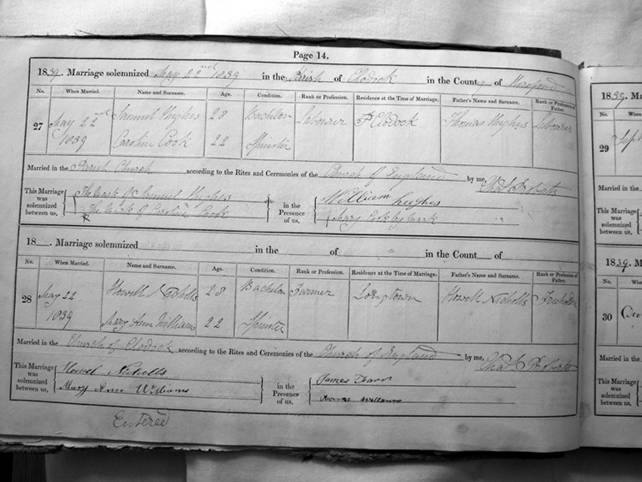 Page 14.
1839. Marriage solemnized May 22nd 1839 in the Parish of Clodock in the County of Hereford
No. When Married. Name and Surname. Age. Condition. Rank or Profession. Residence at the Time of Marriage. Father's Name and Surname. Rank or Profession of Father.
27 May 22nd 1839 Samuel Hughes 28 Bachelor Labourer Clodock Thomas Hughes Labourer
Caroline Cook 22 Spinster
Married in the Parish Church according to the Rites and Ceremonies of the Church of England by me,
This Marriage was solemnized between us, The Mark of Samuel Hughes in the Presence of us. William Hughes
The Mark of Caroline Cook Mary Cook by mark
18 . Marriage solemnized in the of in the County of
No. When Married. Name and Surname. Age. Condition. Rank or Profession. Residence at the Time of Marriage. Father's Name and Surname. Rank or Profession of Father.
28 May 22 1839 Howell Nicholls 28 Bachelor Farmer Longtown Howell Nicholls
Mary Ann Williams 22 Spinster
Married in the Church of Clodock according to the Rites and Ceremonies of the Church of England by me,
This Marriage was solemnized between us, Howell Nicholls in the Presence of us. James
Mary Ann Williams Williams
Entered
1839. M
No. When
29
1839. M
No. Wh
30